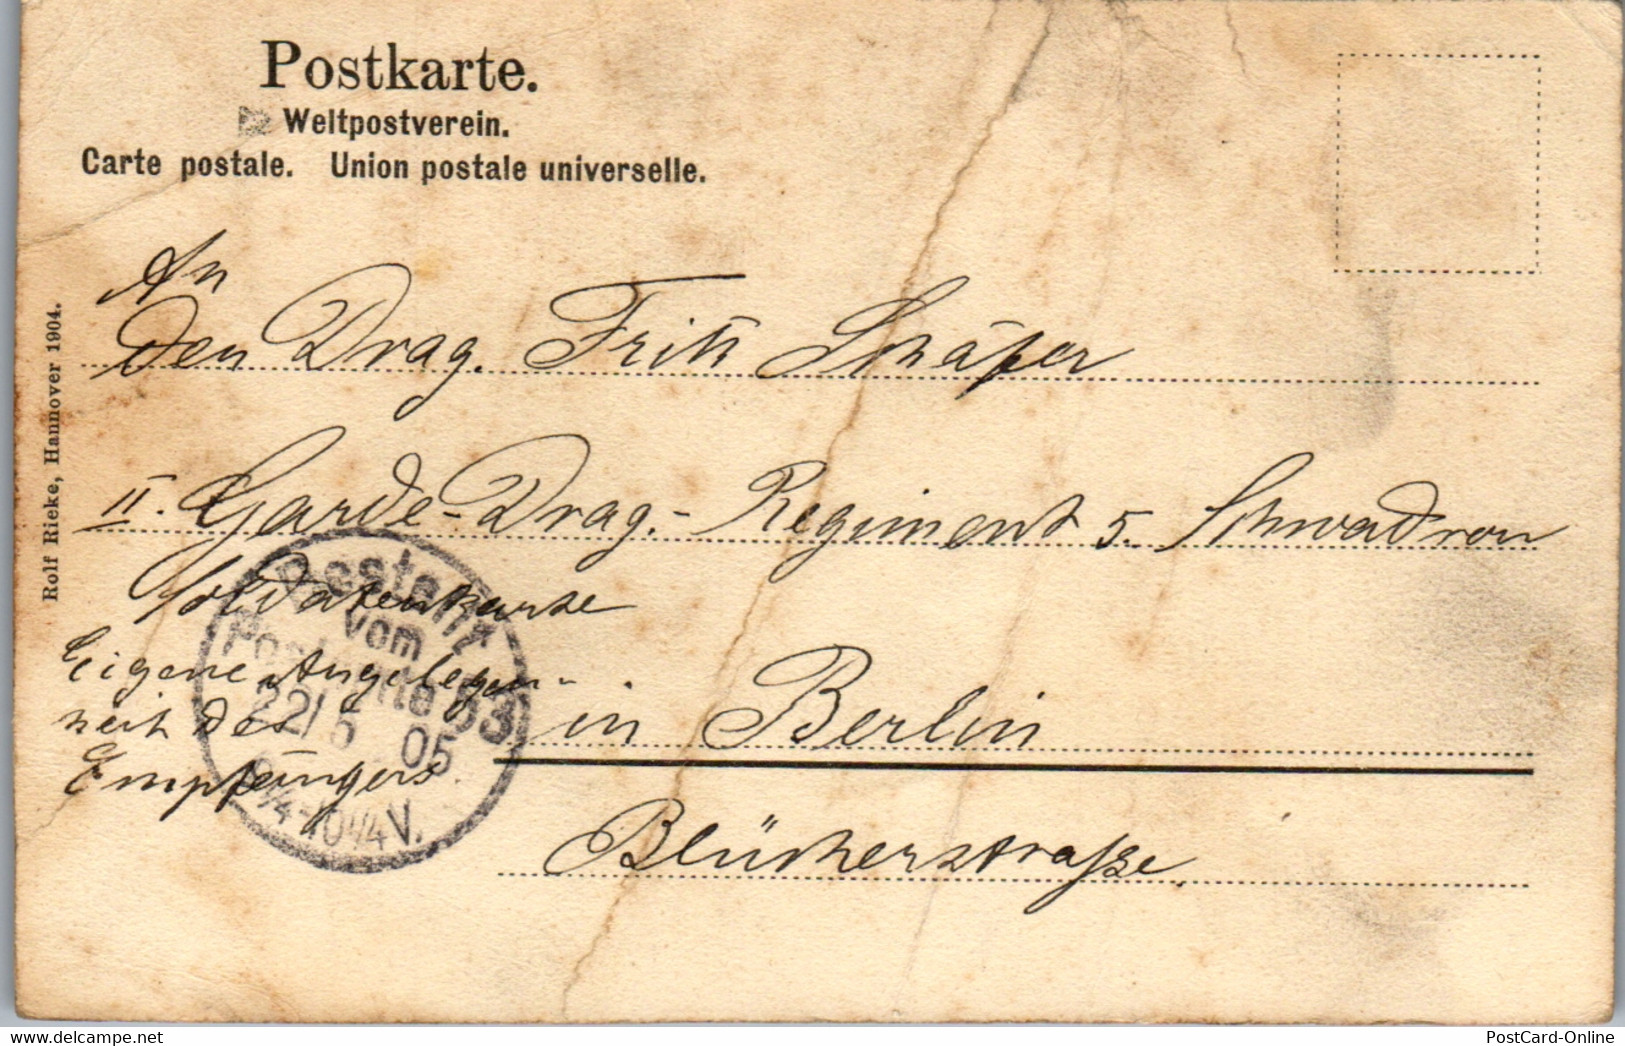 Postkarte.
Weltpostverein.
Carte postale. Union postale universelle.
Rolf Rieke, Hannover 1904.
An
den Drag. Fritz Schäfer
II. Garde-Drag.-Regiment 5. Schwadron
Soldatenkarte
Eigene Angelegen-
heit des
Empfängers.
in Berlin
Blücherstraße.
Bestellt
vom
Postamte 53
22/5 05
9¼-10¼V.
PostCard-Online